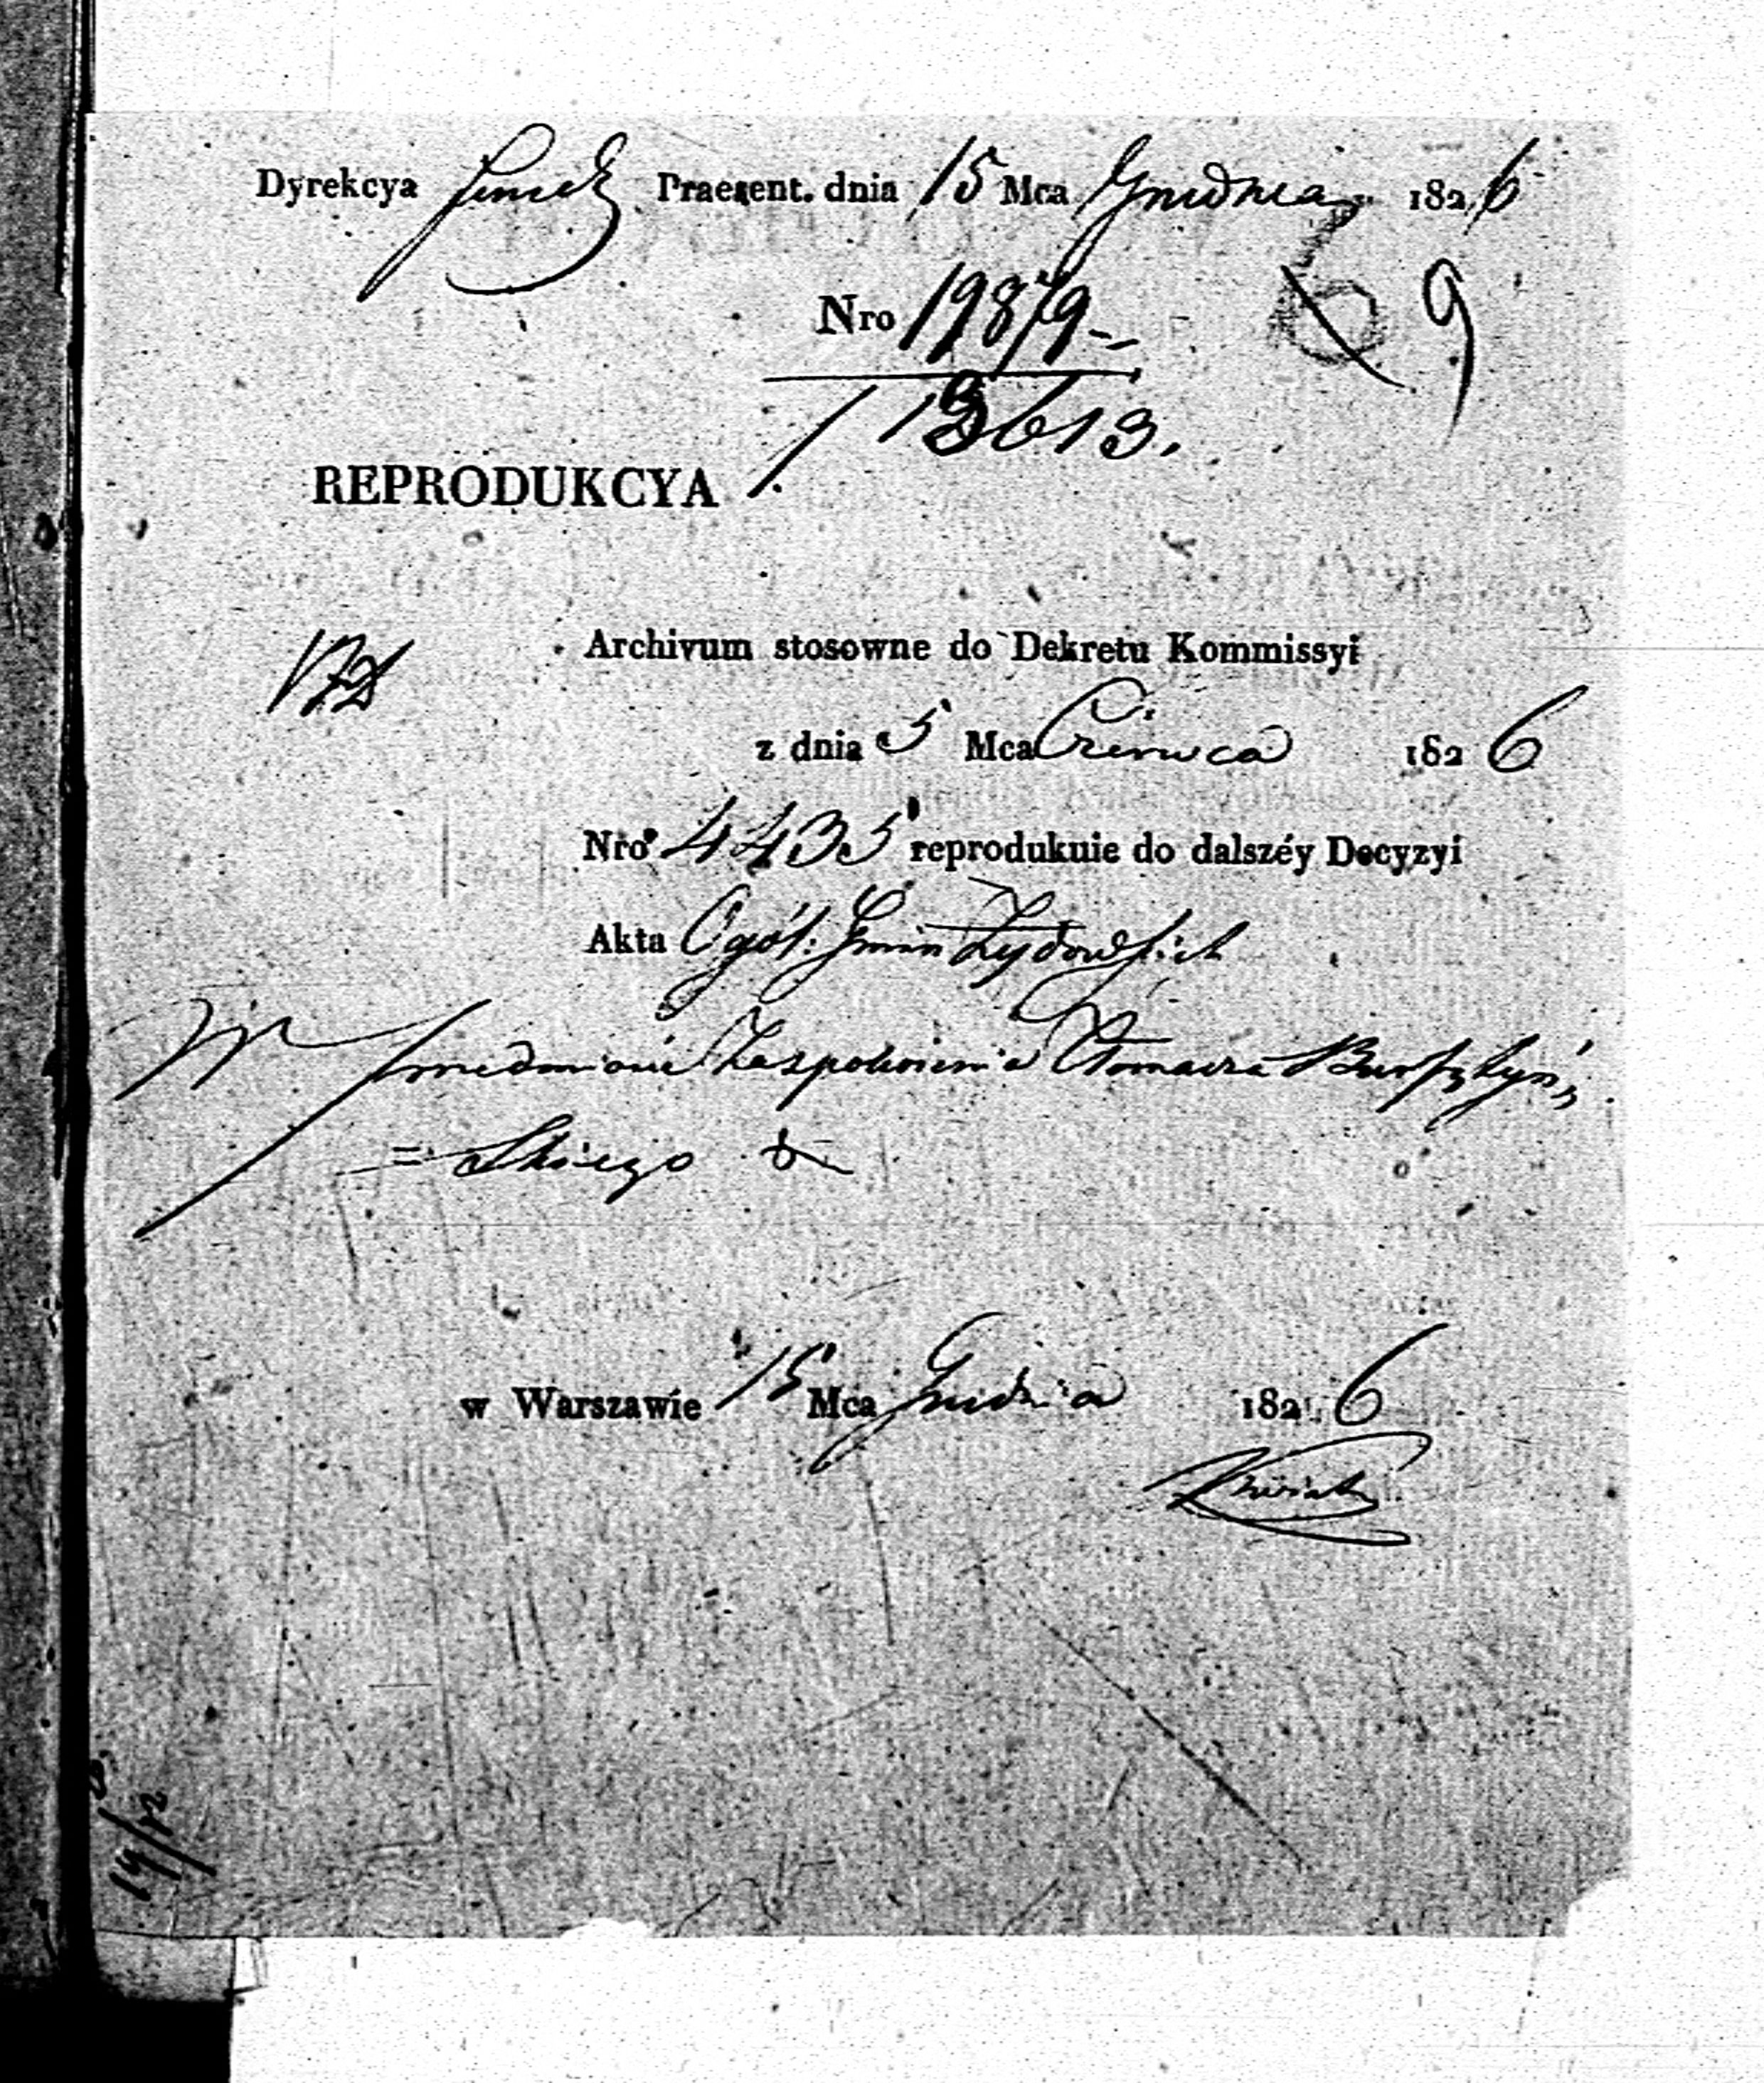 Dyrekcya Praesent. dnia 15 Mca Grudnia 1826
9
Nro 19879
13613.
REPRODUKCYA
Archivum stosowne do Dekretu Kommissyi
z dnia 5 Mca Czerwca 1826
Nro 4435 reprodukuie do dalszéy Decyzyi
Akta Ogól: Gmin Żydowskich
W przedmiocie Zaspokoienia Tłomacza
=skiego
w Warszawie 15 Mca Grudnia 1826
19/12